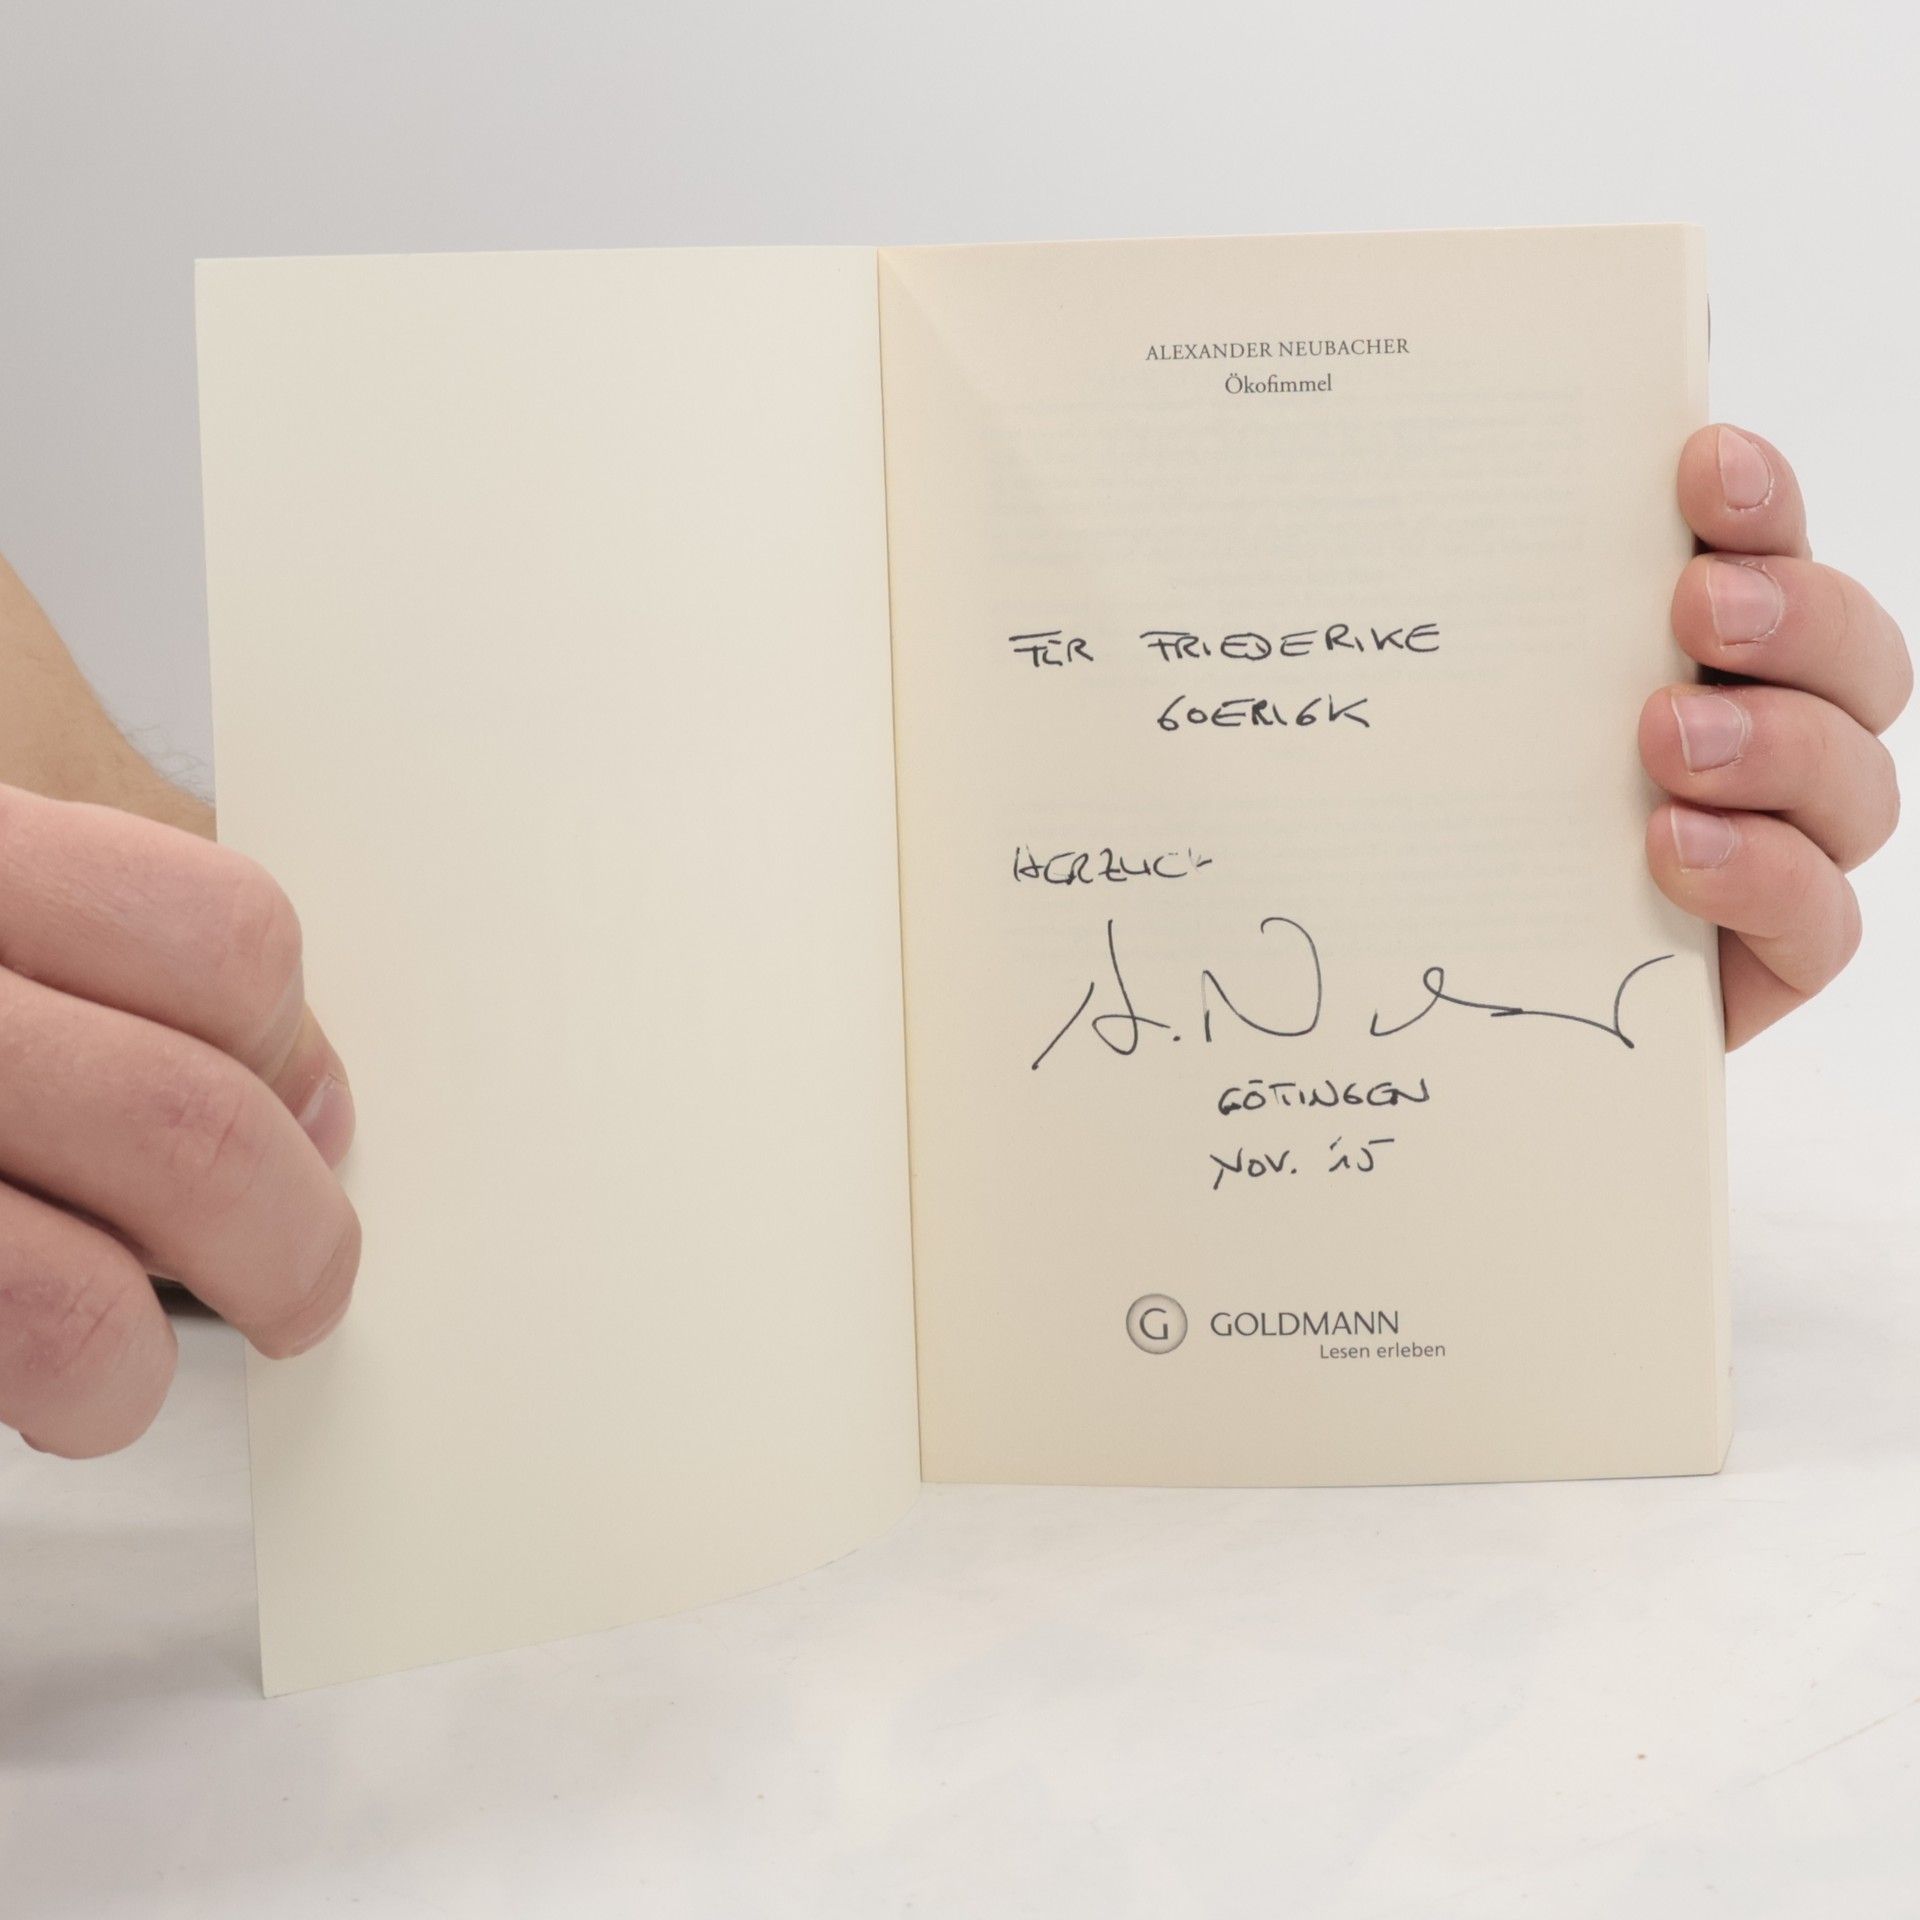 ALEXANDER NEUBACHER
Ökofimmel
FÜR FRIEDERIKE
GOERIGK
HERZLICH
A. N
GÖTTINGEN
NOV. '15
G GOLDMANN
Lesen erleben